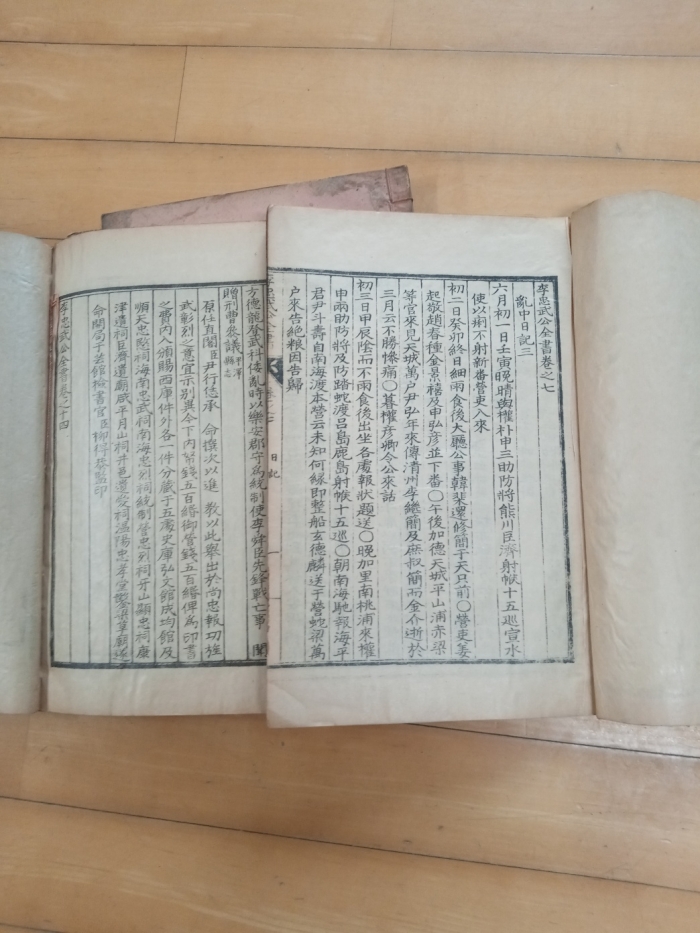 李忠武公全書卷之七
亂中日記三
六月初一日壬寅晚晴與權朴申三助防將熊川臣濟射帿十五巡宣水
使以痢不射新番營吏入來
初二日癸卯終日細雨食後大廳公事韓斐還修簡于天只前〇營吏姜
起敬趙春種金景禧及申弘彦並下番〇午後加德天城平山浦赤梁
等官來見天城萬戶尹弘年來傳淸州李繼簡及庶叔簡而金介逝於
三月云不勝慘痛〇暮權彦卿令公來話
初三日甲辰陰而不雨食後出坐各處報狀題送〇晚加里南桃浦來權
申兩助防將及防踏蛇渡呂島鹿島射帿十五巡〇朝南海馳報海平
君尹斗壽自南海渡本營云未知何緣卽整船玄德麟送于營蛇梁萬
戶來告絶粮因告歸
日記
方德龍登武科倭亂時以樂安郡守爲統制使李舜臣先鋒戰亡事 聞
贈刑曹參議
原任直閣臣尹行恁承 命撰次以進 敎以此擧出於尙忠報功旌
武彰烈之意宜示別異令下內帑錢五百緡御營錢五百緡俾爲印書
之費內入頒賜西庫件外各一件分藏于五處史庫弘文館成均館及
順天忠愍祠海南忠武祠南海忠烈祠統制營忠烈祠牙山顯忠祠康
津遺祠巨濟遺廟咸平月山祠井邑遺愛祠溫陽忠孝堂
命開局于芸館檢書官臣柳得恭監印
李忠武公全書卷之十四